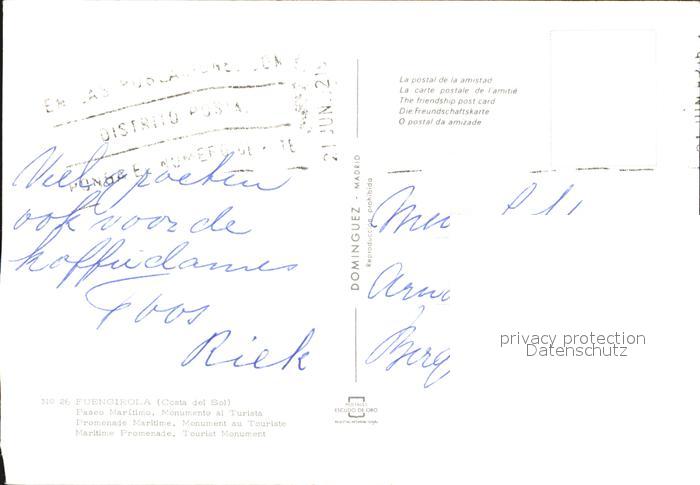 EN LAS POBLACIONES CON
DISTRITO POSTAL
PONGA EL NUMERO DE ESTE
21 JUN.
Vele groeten
ook voor de
koffiedames
Toos
Riek
La postal de la amistad
La carte postale de l'amitié
The friendship post card
Die Freundschaftskarte
O postal da amizade
DOMINGUEZ - MADRID
Reproducción prohibida
privacy protection
Datenschutz
Nº 26 FUENGIROLA (Costa del Sol)
Paseo Marítimo, Monumento al Turista
Promenade Maritime, Monument au Touriste
Maritime Promenade, Tourist Monument
POSTALES
ESCUDO DE ORO